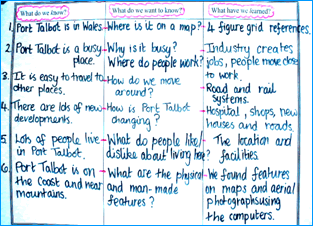 What do we know? What do we want to know? What have we learned?
1. Port Talbot is in Wales Where is it on a map? 4 figure grid references.
2. Port Talbot is a busy Why is it busy? Industry creates
place. Where do people work? jobs, people move close
to work.
3. It is easy to travel to How do we move Road and rail
other places. around? systems.
4. There are lots of new How is Port Talbot Hospital, shops, new
developments. changing? houses and roads.
5. Lots of people live What do people like/ The location and
in Port Talbot. dislike about living here? facilities.
6. Port Talbot is on What are the physical We found features
the coast and near and man-made on maps and aerial
mountains. features? photographs using
the computers.